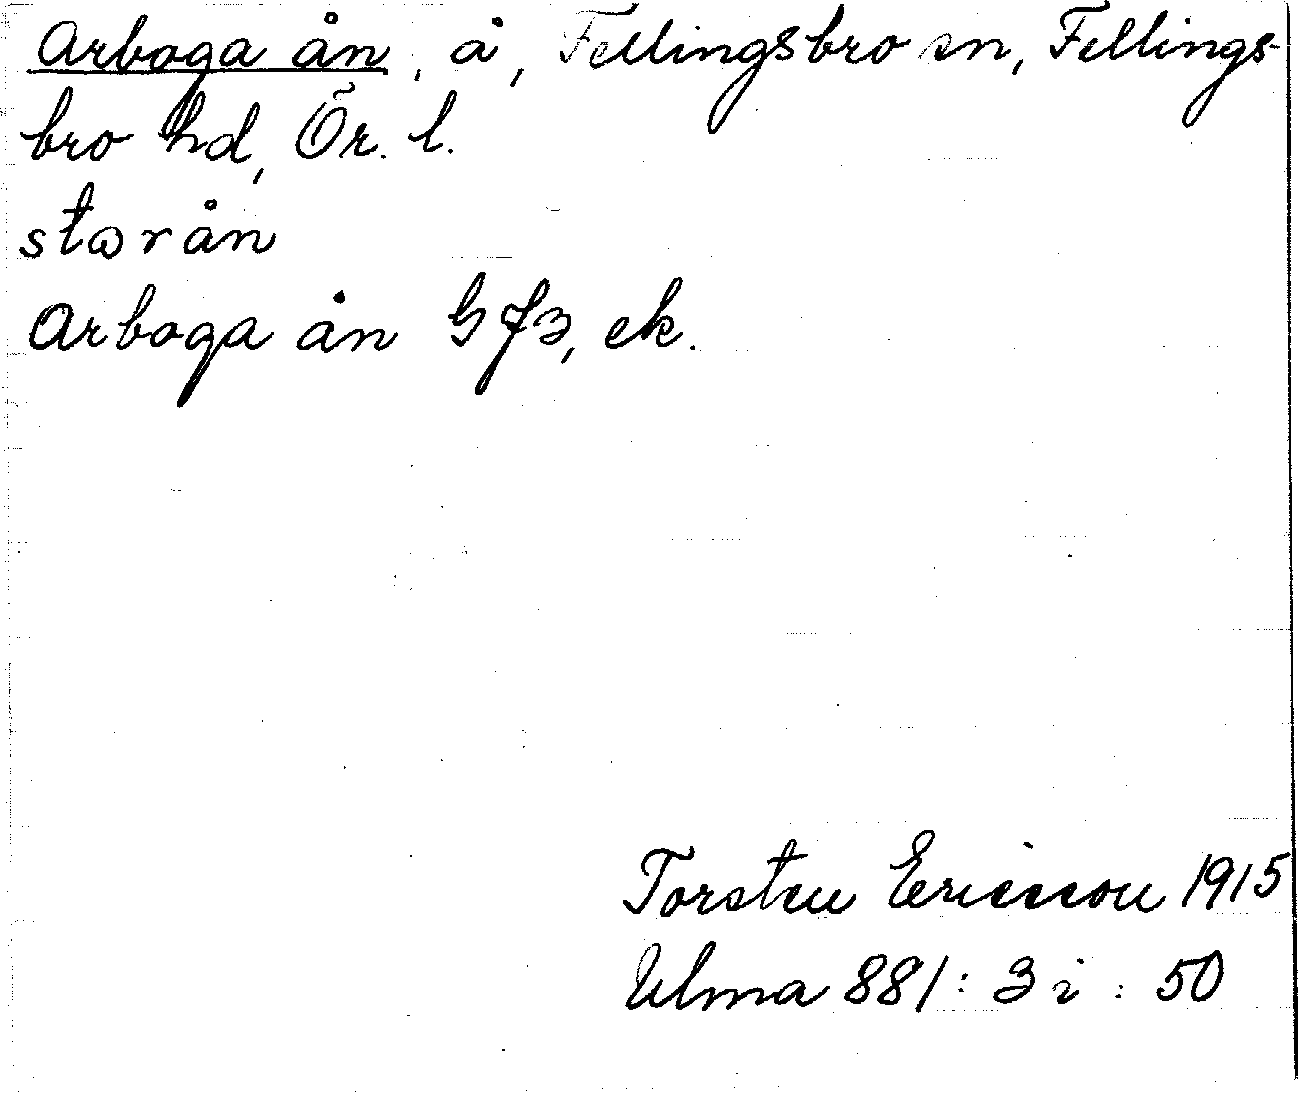 Arboga ån, å, Fellingsbro sn, Fellings-
bro hd, Ör. l.
starån
Arboga ån Gf3, ek.
Torsten Ericsson 1915
Ulma 881: 3 i : 50